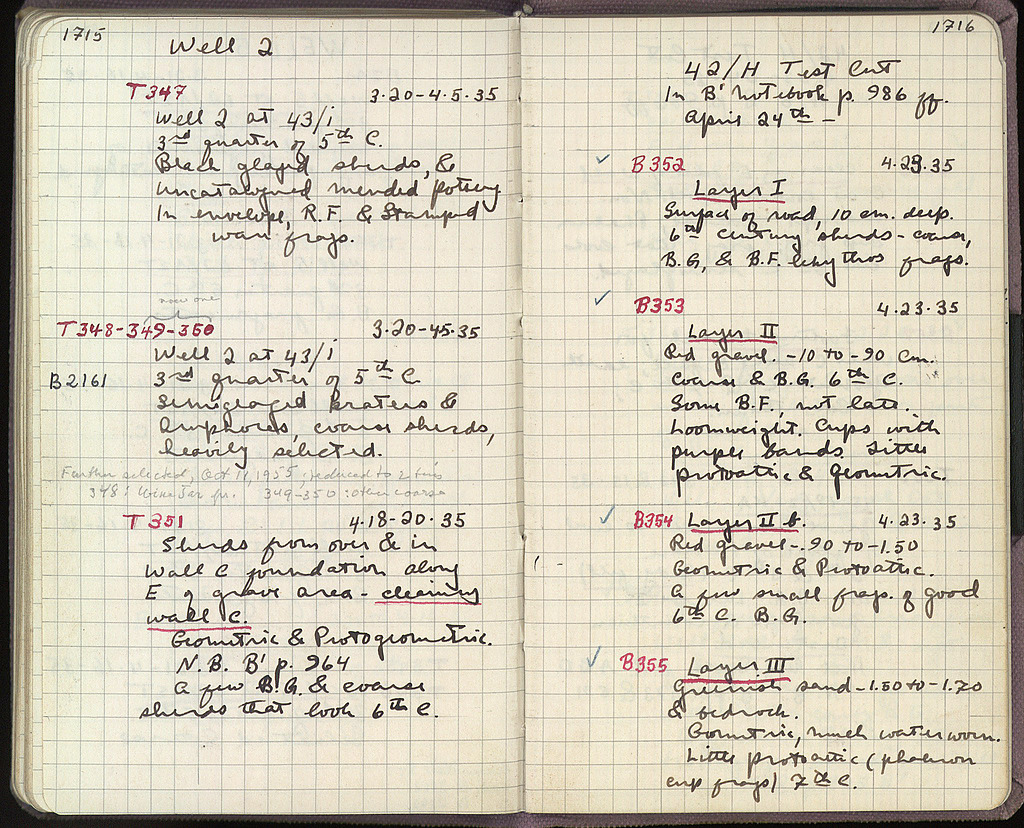 1715
Well 2
T347 3·20-4·5·35
Well 2 at 43/i
3rd quarter of 5th C.
Black glazed sherds, &
uncatalogued mended pottery
In envelope, R.F. & Stamped
ware frags.
now one
T348-349-350 3·20-4·5·35
Well 2 at 43/i
B2161 3rd quarter of 5th C.
Semiglazed kraters &
Amphoras, coarse sherds,
heavily selected.
Further selected, Oct 11, 1955; reduced to 2 tins
348: Wine Jar fr. 349-350: other coarse
T351 4·18-20·35
Sherds from over & in
Wall C foundation along
E of grave area - cleaning
wall C.
Geometric & Protogeometric.
N.B. B' p. 964
A few B.G. & coarse
sherds that look 6th C.
1716
42/H Test Cut
In B' notebook p. 986 ff.
April 24th -
B352 4·23·35
Layer I
Surface of road, 10 cm. deep.
6th century sherds - coarse,
B.G, & B.F. lekythos frags.
B353 4·23·35
Layer II
Red gravel. -10 to -90 cm.
Coarse & B.G. 6th C.
Some B.F., not late.
Loomweight. Cups with
purple bands. Little
protoattic & Geometric.
B354 Layer II b. 4·23·35
Red gravel -.90 to -1.50
Geometric & Protoattic.
A few small frags. of good
6th C. B.G.
B355 Layer III
Greenish sand -1.50 to -1.70
& bedrock.
Geometric, much waterworn.
Little protoattic (phaleron
cup frags) 7th C.